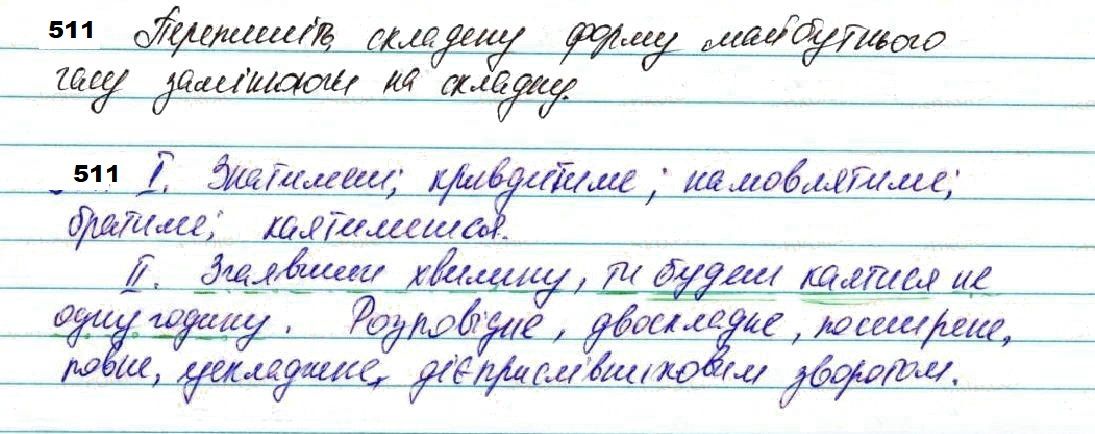 511 Перепишіть, складену форму майбутнього
часу замінюючи на складну.
511 І. Знатимеш; кривдитиме; намовлятиме;
братиме; каятимешся.
ІІ. Згаявши хвилину, ти будеш каятися не
одну годину. Розповідне, двоскладне, поширене,
повне, ускладнене, дієприслівниковим зворотом.